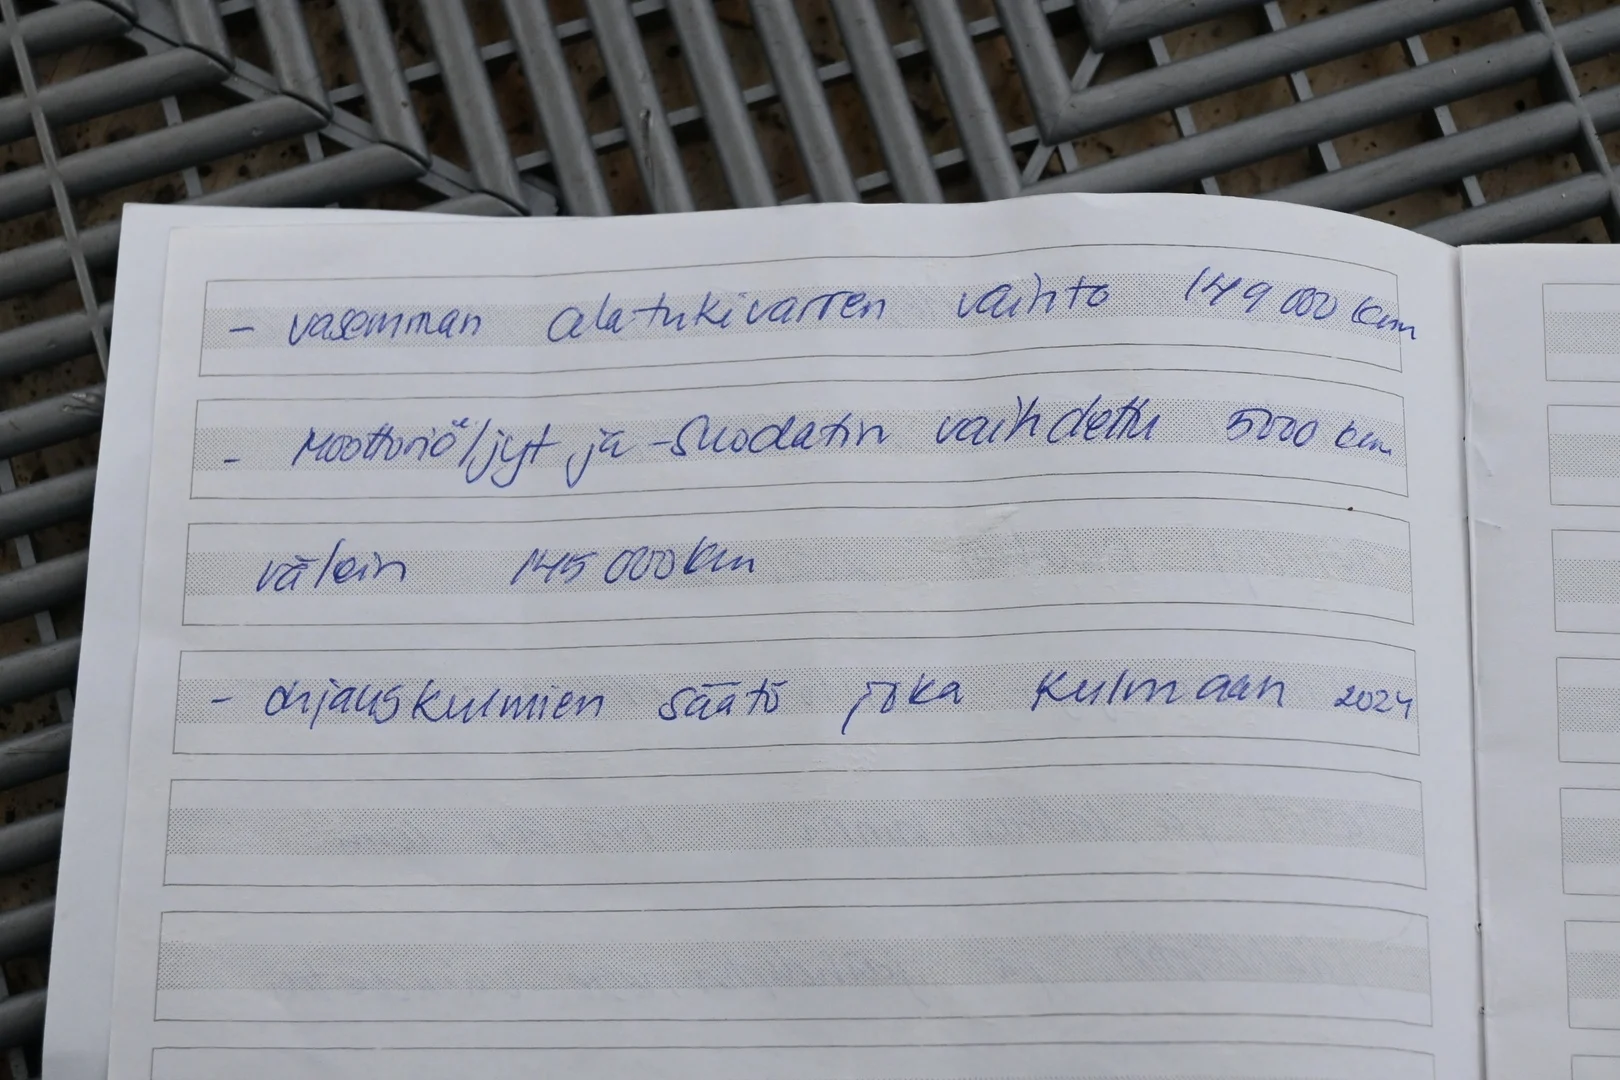 - vasemman alatukivarren vaihto 149 000 km
- Moottoriöljyt ja -suodatin vaihdettu 5000 km
välein 145 000 km
- ohjauskulmien säätö joka kulmaan 2024